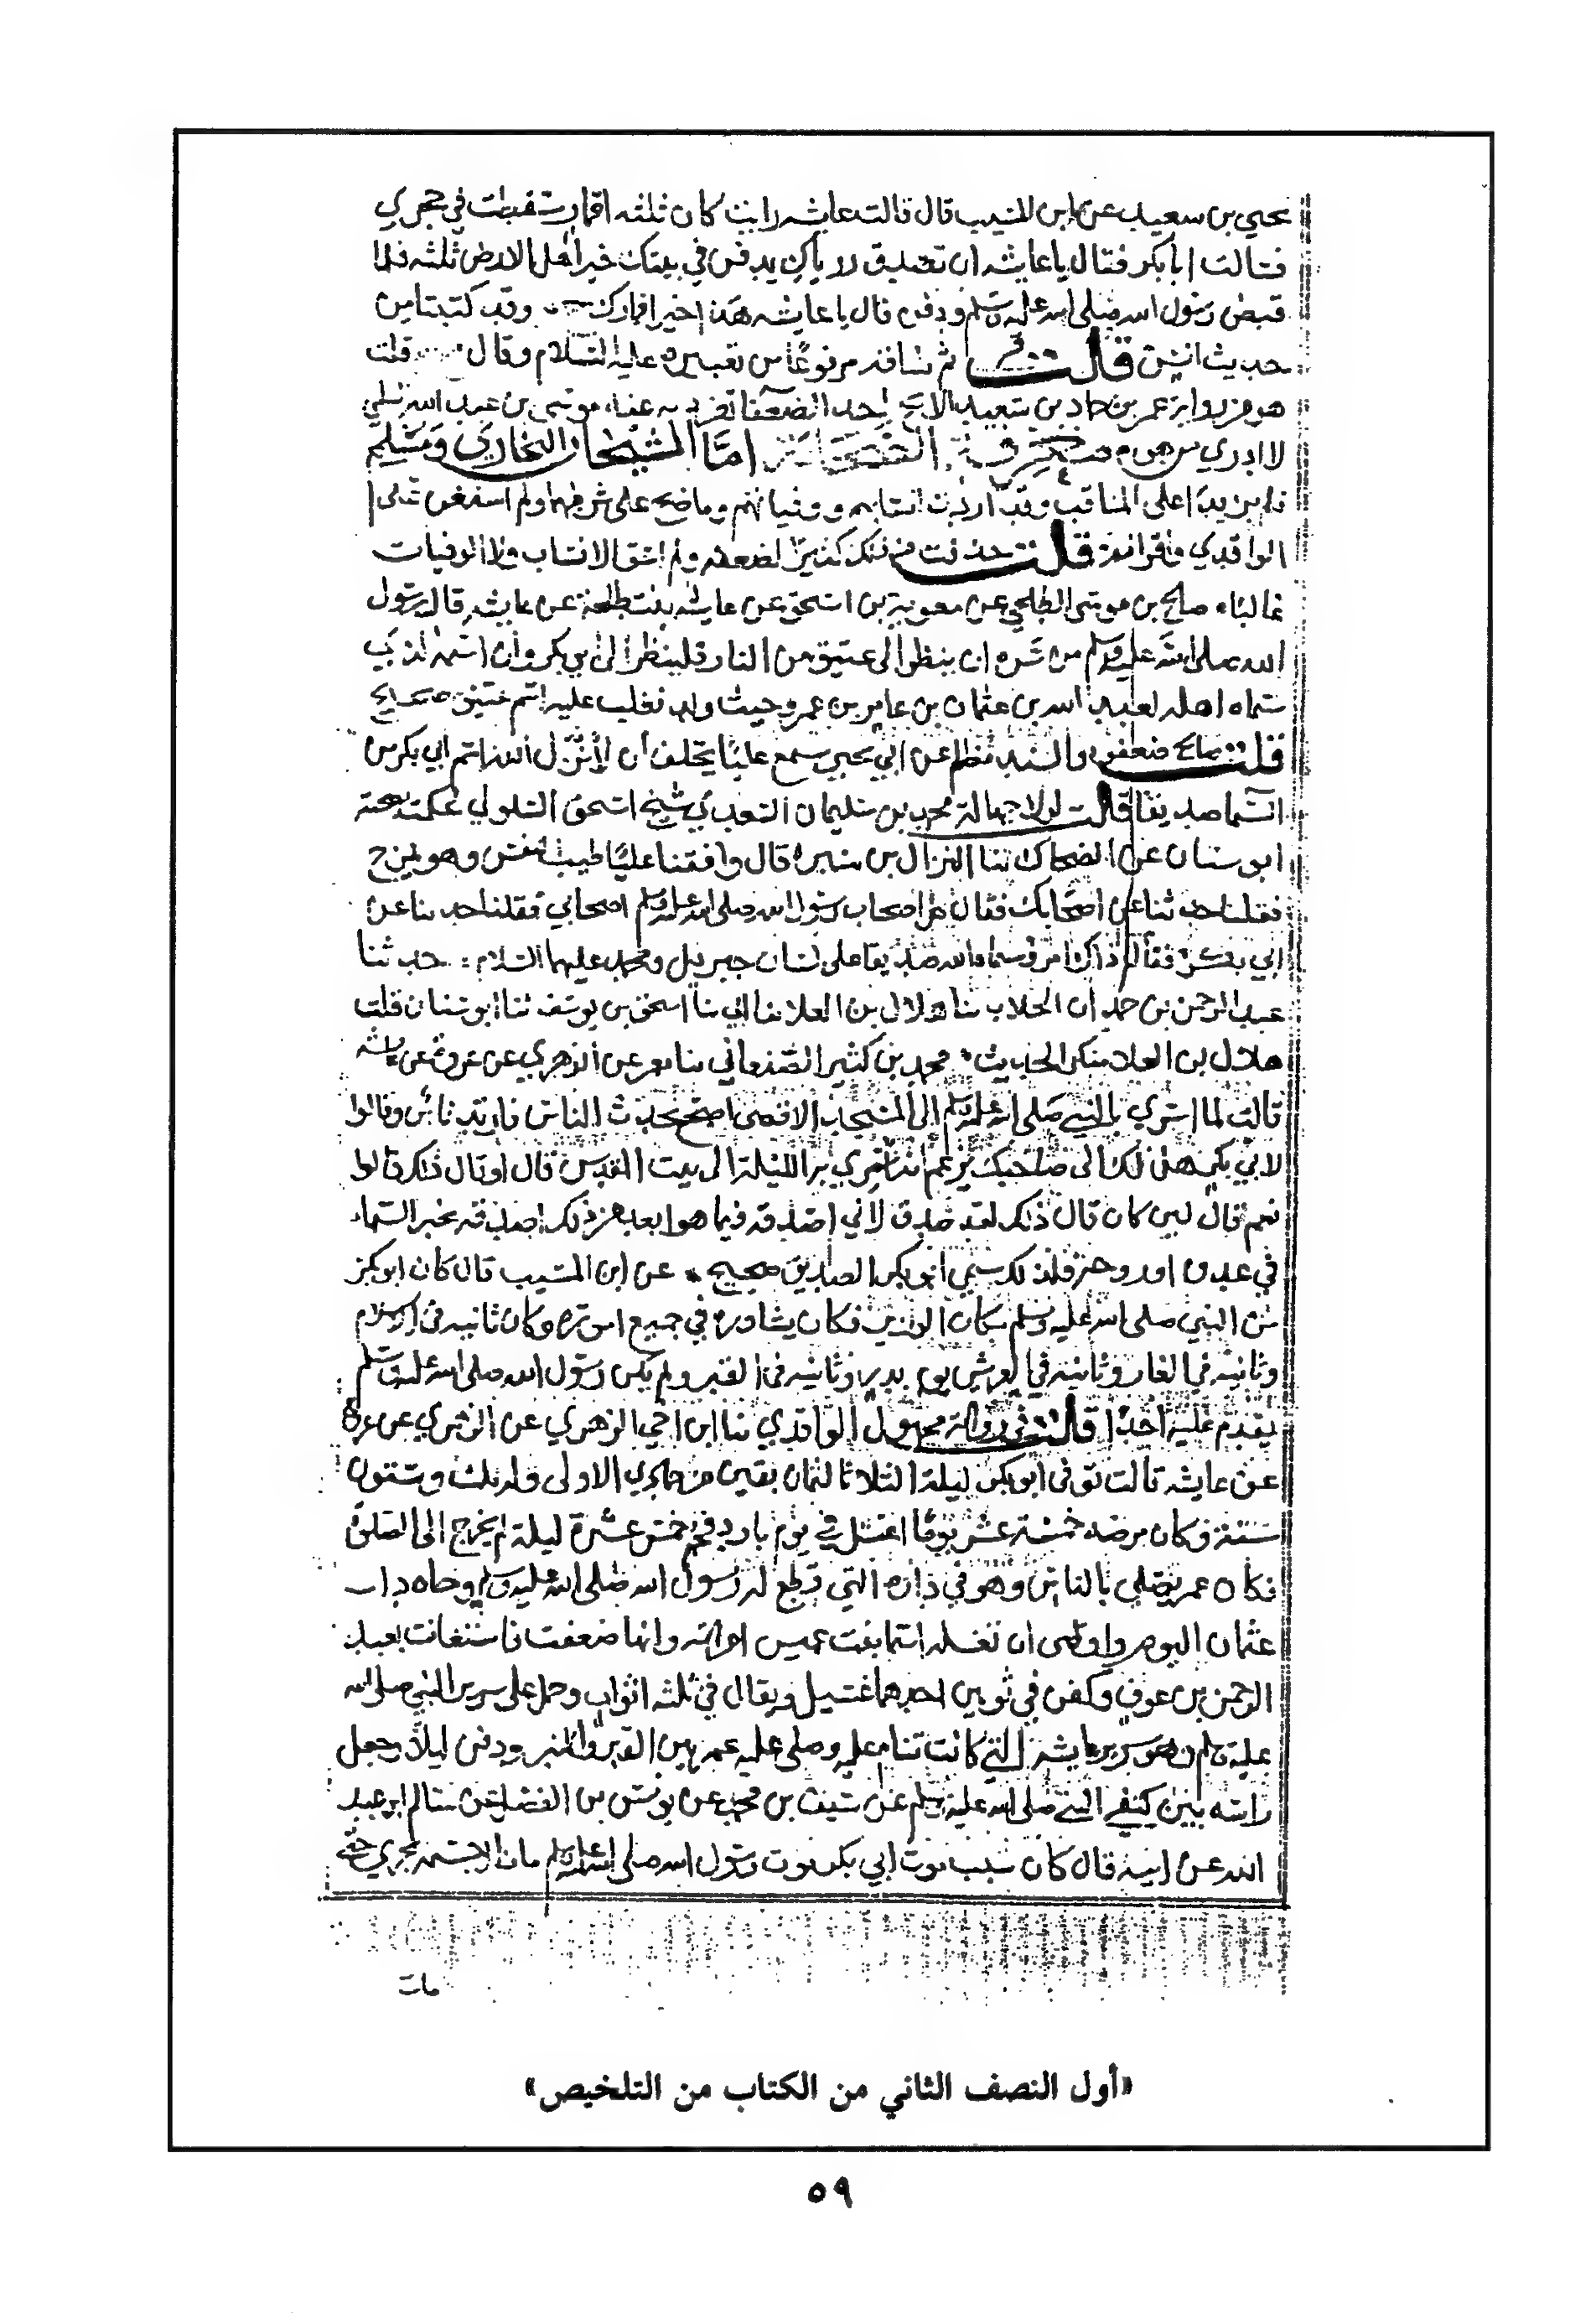 يحيى بن سعيد عن ابن المسيب قال قالت عايشه رايت كان ثلثه اقمار سقطت في حجري
فسالت ابا بكر فقال يا عايشه ان تصدق روياك يدفن في بيتك خير اهل الارض ثلثه فلما
قبض رسول الله صلى الله عليه وسلم ودفن قال يا عايشه هذا خير اقمارك وقد كتبتا من
حديث انس قلت ثم ساقه مرفوعا من تفسيره عليه السلام وقال قلت
هو من رواية عمر بن حماد بن سعيد الابح احد الضعفا تفرد به عنه موسى بن عبد الله السلمي
لا ادري من هو معرفة الصحابة اما الشيخان البخاري ومسلم
الواقدي واقرانه قلت حذفت من ذلك كثيرا لضعفه ولم اسق الانساب ولا الوفيات
غالبا صالح بن موسى الطلحي عن معوية بن اسحق عن عايشه بنت طلحة عن عايشه قال رسول
الله صلى الله عليه وسلم من سره ان ينظر الى عتيق من النار فلينظر الى ابي بكر وان اسمه الذي
سماه اهله لعبد الله بن عثمان بن عامر بن عمرو حيث ولد فغلب عليه اسم عتيق صحيح
قلت صالح ضعفوه والسند مظلم عن ابي يحيى سمع عليا يحلف لانزل الله اسم ابي بكر من
السما صديقا قلت لولا جهالة محمد بن سليمان السعدي شيخ اسحق السلولي لحكمت بصحته
ابو سنان عن الضحاك ثنا النزال بن سبره قال وافقنا عليا طيب النفس وهو يمزح
فقلنا حدثنا عن اصحابك فقال كل اصحاب رسول الله صلى الله عليه وسلم اصحابي فقلنا حدثنا عن
ابي بكر فقال ذاك امرؤ سماه الله صديقا على لسان جبريل ومحمد عليهما السلام حدثنا
عبد الرحمن بن حمدان الجلاب ثنا هلال بن العلا ثنا ابي ثنا اسحق بن يوسف ثنا ابو سنان قلت
هلال بن العلا منكر الحديث محمد بن كثير الصنعاني ثنا معمر عن الزهري عن عروة عن عايشه
قالت لما اسري بالنبي صلى الله عليه وسلم الى المسجد الاقصى اصبح يحدث الناس فارتد ناس وقالوا
لابي بكر هل لك الى صاحبك يزعم انه اسري به الليلة الى بيت المقدس قال او قال ذلك قالوا
نعم قال لين كان قال ذلك لقد صدق لاني اصدقه فيما هو ابعد من ذلك اصدقه بخبر السماء
في غدوه او روحه فلذلك سمي ابو بكر الصديق صحيح عن ابن المسيب قال كان ابو بكر
من النبي صلى الله عليه وسلم مكان الوزير فكان يشاوره في جميع اموره وكان ثانيه في الاسلام
وثانيه في الغار وثانيه في العريش يوم بدر وثانيه في القبر ولم يكن رسول الله صلى الله عليه وسلم
يقدم عليه احدا قلت في رواته مجهول الواقدي ثنا ابن اخي الزهري عن الزهري عن عروة
عن عايشه قالت توفي ابو بكر ليلة الثلاثا لثمان بقين من جمادى الاولى وله ثلث وستون
سنة وكان مرضه خمسة عشر يوما اغتسل في يوم بارد فحم خمس عشرة ليلة لم يخرج الى الصلوة
فكان عمر يصلي بالناس وهو في داره التي قطع له رسول الله صلى الله عليه وسلم وجاه دار
عثمان اليوم واوصى ان تغسله اسما بنت عميس امراته وانها ضعفت فاستعانت بعبد
الرحمن بن عوف وكفن في ثوبين احدهما غسيل ويقال في ثلثه اثواب وحمل على سرير النبي صلى الله
عليه وسلم وهو سرير عايشه التي كانت تنام عليه وصلى عليه عمر بين القبر والمنبر ودفن ليلا وجعل
راسه بين كتفي النبي صلى الله عليه وسلم عن سيف بن محمد عن يونس بن الفضل عن سالم بن عبد
الله عن ابيه قال كان سبب موت ابي بكر موت رسول الله صلى الله عليه وسلم مازال جسمه يجري حتى
مات
«أول النصف الثاني من الكتاب من التلخيص»
٥٩